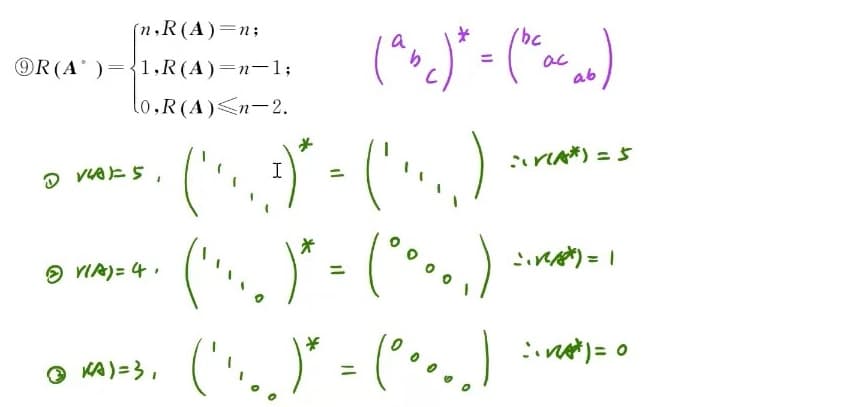 ⑨R(A*)={n,R(A)=n;
1,R(A)=n-1;
0,R(A)≤n-2.
(a b c)* = (bc ac ab)
① r(A)=5, (1 1 1 1 1)* = (1 1 1 1 1) ∴r(A*)=5
② r(A)=4, (1 1 1 1 0)* = (0 0 0 0 1) ∴r(A*)=1
③ r(A)=3, (1 1 1 0 0)* = (0 0 0 0 0) ∴r(A*)=0